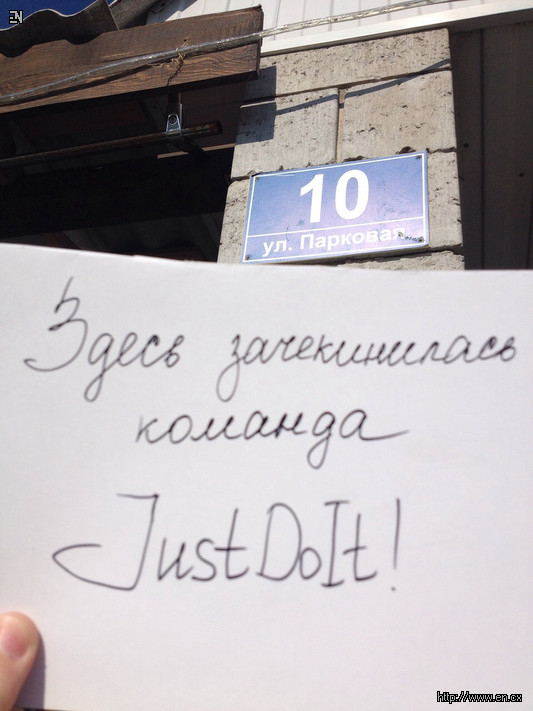 EN
10
ул. Парковая
Здесь зачекинилась
команда
JustDoIt!
http://www.en.cx